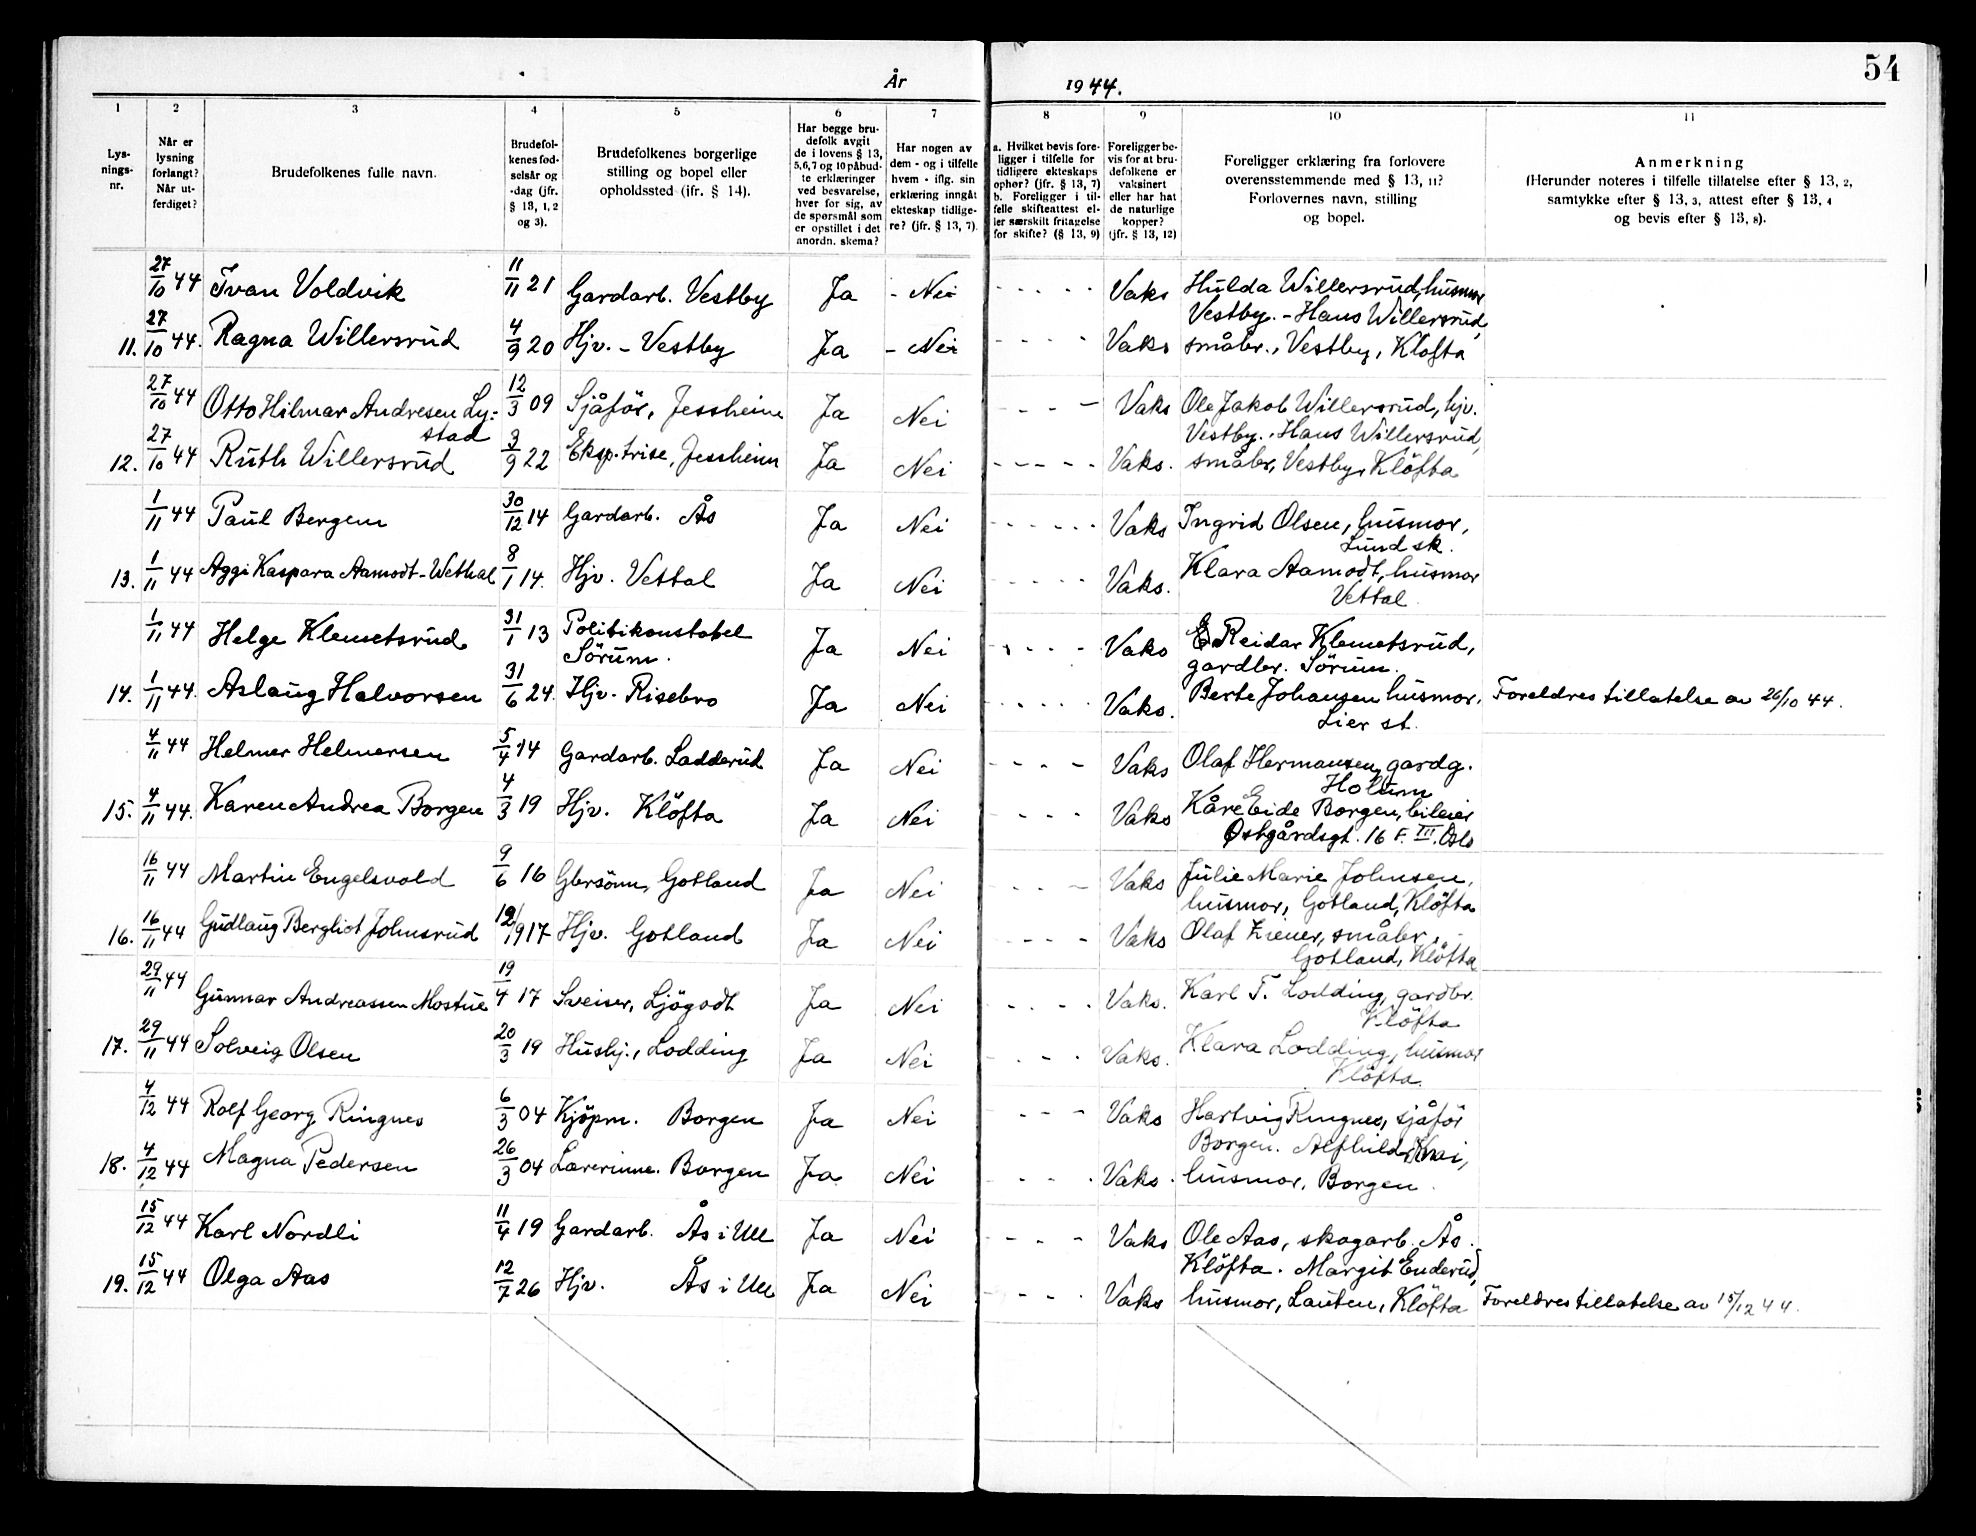 54
År 1944.
1 2 3 4 5 6 7 8 9 10 11
Lysningsnr.
Når er lysning forlangt? Når utferdiget?
Brudefolkenes fulle navn.
Brudefolkenes fødselsår og -dag (jfr. § 13, 1, 2 og 3).
Brudefolkenes borgerlige stilling og bopel eller opholdssted (jfr. § 14).
Har begge brudefolk avgit de i lovens § 13, 5, 6, 7 og 10 påbudte erklæringer ved besvarelse, hver for sig, av de spørsmål som er opstillet i det anordn. skema?
Har nogen av dem - og i tilfelle hvem - iflg. sin erklæring inngåt ekteskap tidligere? (jfr. § 13, 7).
a. Hvilket bevis foreligger i tilfelle for tidligere ekteskaps ophør? (jfr. § 13, 7) b. Foreligger i tilfelle skifteattest eller særskilt fritagelse for skifte? (§ 13, 9)
Foreligger bevis for at brudefolkene er vaksinert eller har hat de naturlige kopper? (jfr. § 13, 12)
Foreligger erklæring fra forlovere overensstemmende med § 13, 11? Forlovernes navn, stilling og bopel.
Anmerkning (Herunder noteres i tilfelle tillatelse efter § 13, 2, samtykke efter § 13, 3, attest efter § 13, 4 og bevis efter § 13, 8).
27/10 44 Ivan Voldvik 11/11 21 Gardarb. Vestby Ja - Nei - - - - - Vaks Hulda Willersrud, husmor
Vestby. - Hans Willersrud,
11. 27/10 44. Ragna Willersrud 4/9 20 Hjv. - Vestby Ja - Nei - - - - Vaks småbr., Vestby, Kløfta
27/10 44 Otto Hilmar Andresen Ly- 12/3 09 Sjåför, Jessheim Ja Nei - - - - Vaks Ole Jakob Willersrud, hjv.
stad Vestby. Hans Willersrud,
12. 27/10 44 Ruth Willersrud 3/9 22 Eksp.trise, Jessheim Ja Nei - - - - - Vaks. småbr, Vestby, Klöfta
1/11 44 Paul Bergem 30/12 14 Gardarb. Ås Ja Nei - - - - - - Vaks Ingrid Olsen, husmor,
Lund sk.
13. 1/11 44 Aggi Kaspara Aamodt-Wethal 8/1 14. Hjv. Vettal Ja Nei - - - - Vaks. Klara Aamodt, husmor
Vettal
1/11 44 Helge Klemetsrud 31/1 13 Politikonstabel Ja Nei - - - - Vaks E. Reidar Klemetsrud,
Sörum. gardbr. Sörum.
14. 1/11 44. Aslaug Halvorsen 31/6 24. Hjv. Risebro Ja Nei - - - - - Vaks. Berte Johansen husmor. Foreldres tillatelse av 26/10 44.
Lier st.
4/11 44 Helmer Helmersen 5/4 14 Gardarb. Ladderud Ja Nei - - - - Vaks Olaf Hermansen, gardg.
Holum
15. 4/11 44. Karen Andrea Borgen 4/3 19 Hjv. Klöfta Ja Nei - - - Vaks Kåre Eide Borgen, bileier
Østgårdsgt. 16 F. III. Oslo
16/11 44 Martin Engelsvold 9/6 16 Gbrsönn, Gotland Ja Nei - - - Vaks Julie Marie Johnsen,
husmor, Gotland, Klöfta
16. 16/11 44 Gudlaug Bergliot Johnsrud 17 Hjv. Gotland Ja Nei - - - - Vaks Olaf Ziener, småbr.
Gotland, Klöfta
29/11 44 Gunnar Andreassen Mostue 19/4 17 Sveiser, Ljögodt Ja Nei - - - - Vaks. Karl T. Lodding, gardbr.
Klöfta
17. 29/11 44 Solveig Olsen 20/3 19 Hushj., Lodding Ja Nei - - - - Vaks. Klara Lodding, husmor
Klöfta.
4/12 44 Rolf Georg Ringnes 6/3 04 Kjöpm. Borgen Ja Nei - - - Vaks Hartvig Ringnes, sjåför
Borgen. Alfhild
18. 4/12 44 Magna Pedersen 26/3 04 Lærerinne. Borgen Ja Nei - - - Vaks. husmor, Borgen.
15/12 44 Karl Nordli 11/4 19 Gardarb. Ås i Ull Ja Nei - - - Vaks Ole Aas, skogarb. Ås.
Klöfta. Margit Enderud,
19. 15/12 44 Olga Aas 12/7 26 Hjv. Ås i Ull Ja Nei - - - - Vaks husmor, Lauten, Klöfta Foreldres tillatelse av 15/12 44.